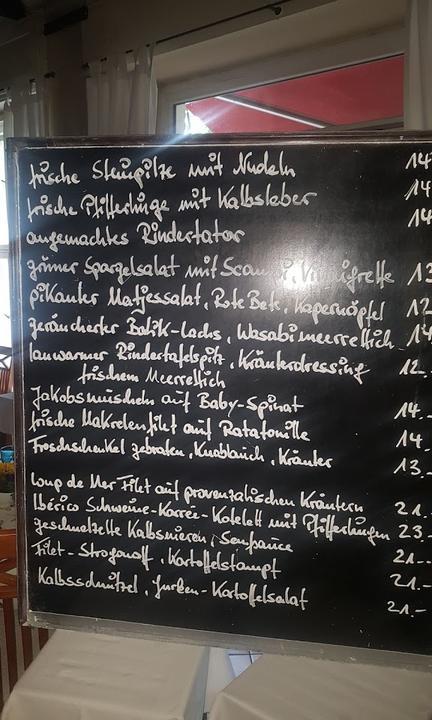 frische Steinpilze mit Nudeln 14
frische Pfifferlinge mit Kalbsleber 14
angemachtes Rindertatar 14
grüner Spargelsalat mit 13
pikanter Matjessalat, Rote Bete, Kapernäpfel 12
geräucherter Balik-Lachs, Wasabimeerrettich 14
lauwarmer Rindertafelspitz, Kräuterdressing 12.-
frischem Meerrettich
Jakobsmuscheln auf Baby-Spinat 14.-
frische Makrelenfilet auf Ratatouille 14.-
Froschschenkel gebraten, Knoblauch, Kräuter 13.-
Loup de Mer Filet auf provenzalischen Kräutern 21.-
Ibérico Schweine-Karree-Kotelett mit Pfifferlingen 23.-
geschnetzelte Kalbsnieren, Senfsauce 21.-
Filet-Stroganoff, Kartoffelstampf 21.-
Kalbsschnitzel, Gurken-Kartoffelsalat 21.-